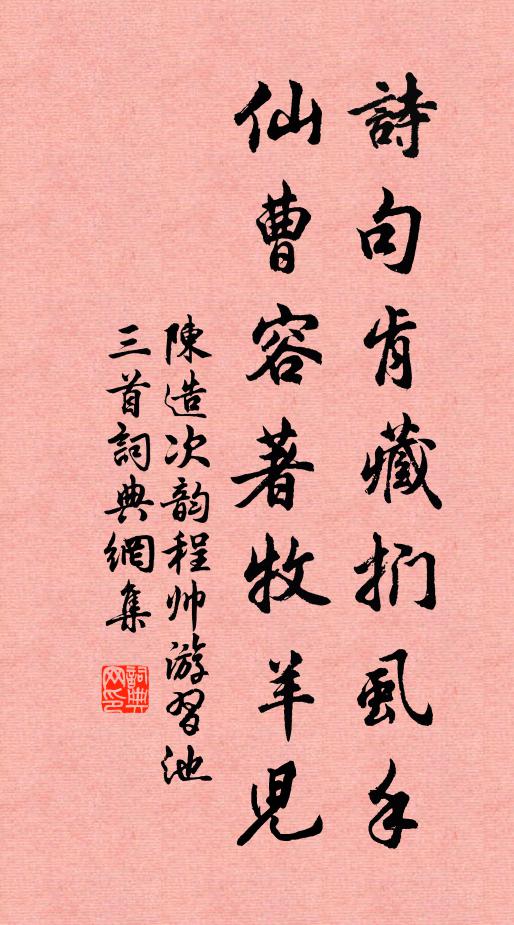 詩句肯藏捫虱手
仙曹容著牧羊児
陳造次韵程帅游習池
三首詞典網集
詞典网印